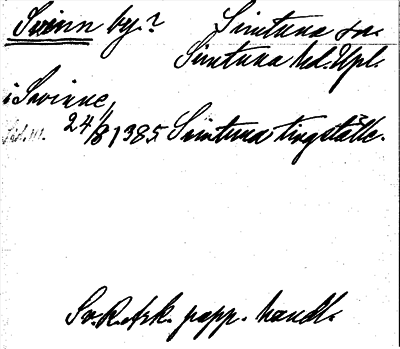 Svinn by? Simtuna sn.
Simtuna hd. Upl.
i Swinne,
24/8 1385 Simtuna tingställe.
Sv. R. Ark. papp. handl.